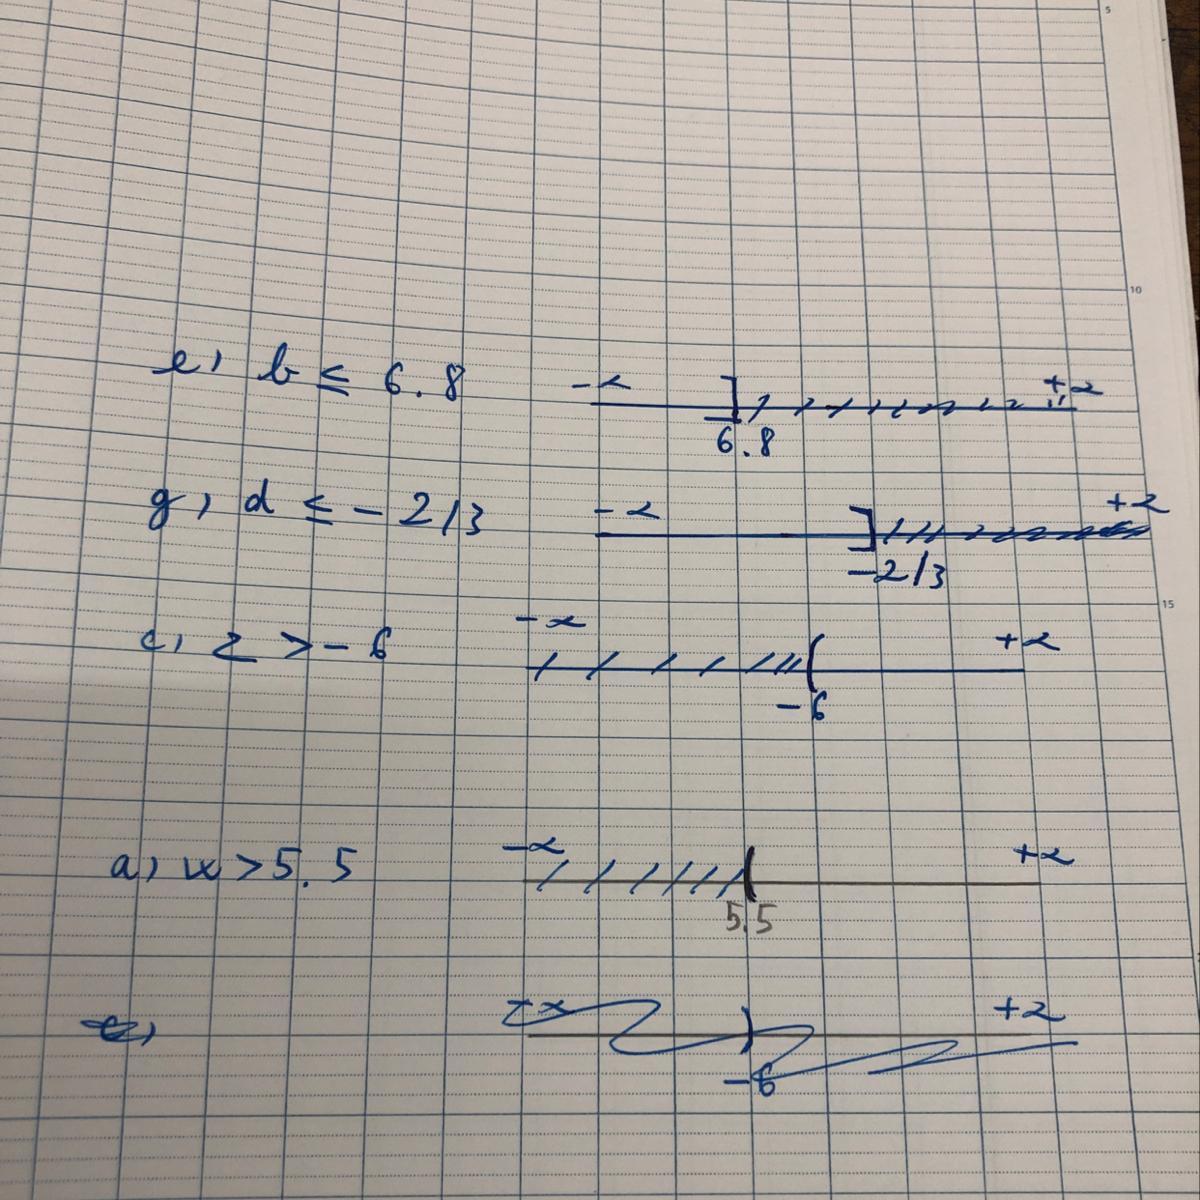 5
10
e) b ≤ 6.8 -∞ 6.8 +∞
g) d ≤ -2/3 -∞ -2/3 +∞
15
c) z > -6 -∞ -6 +∞
a) x > 5.5 -∞ 5.5 +∞
-∞ -6 +∞